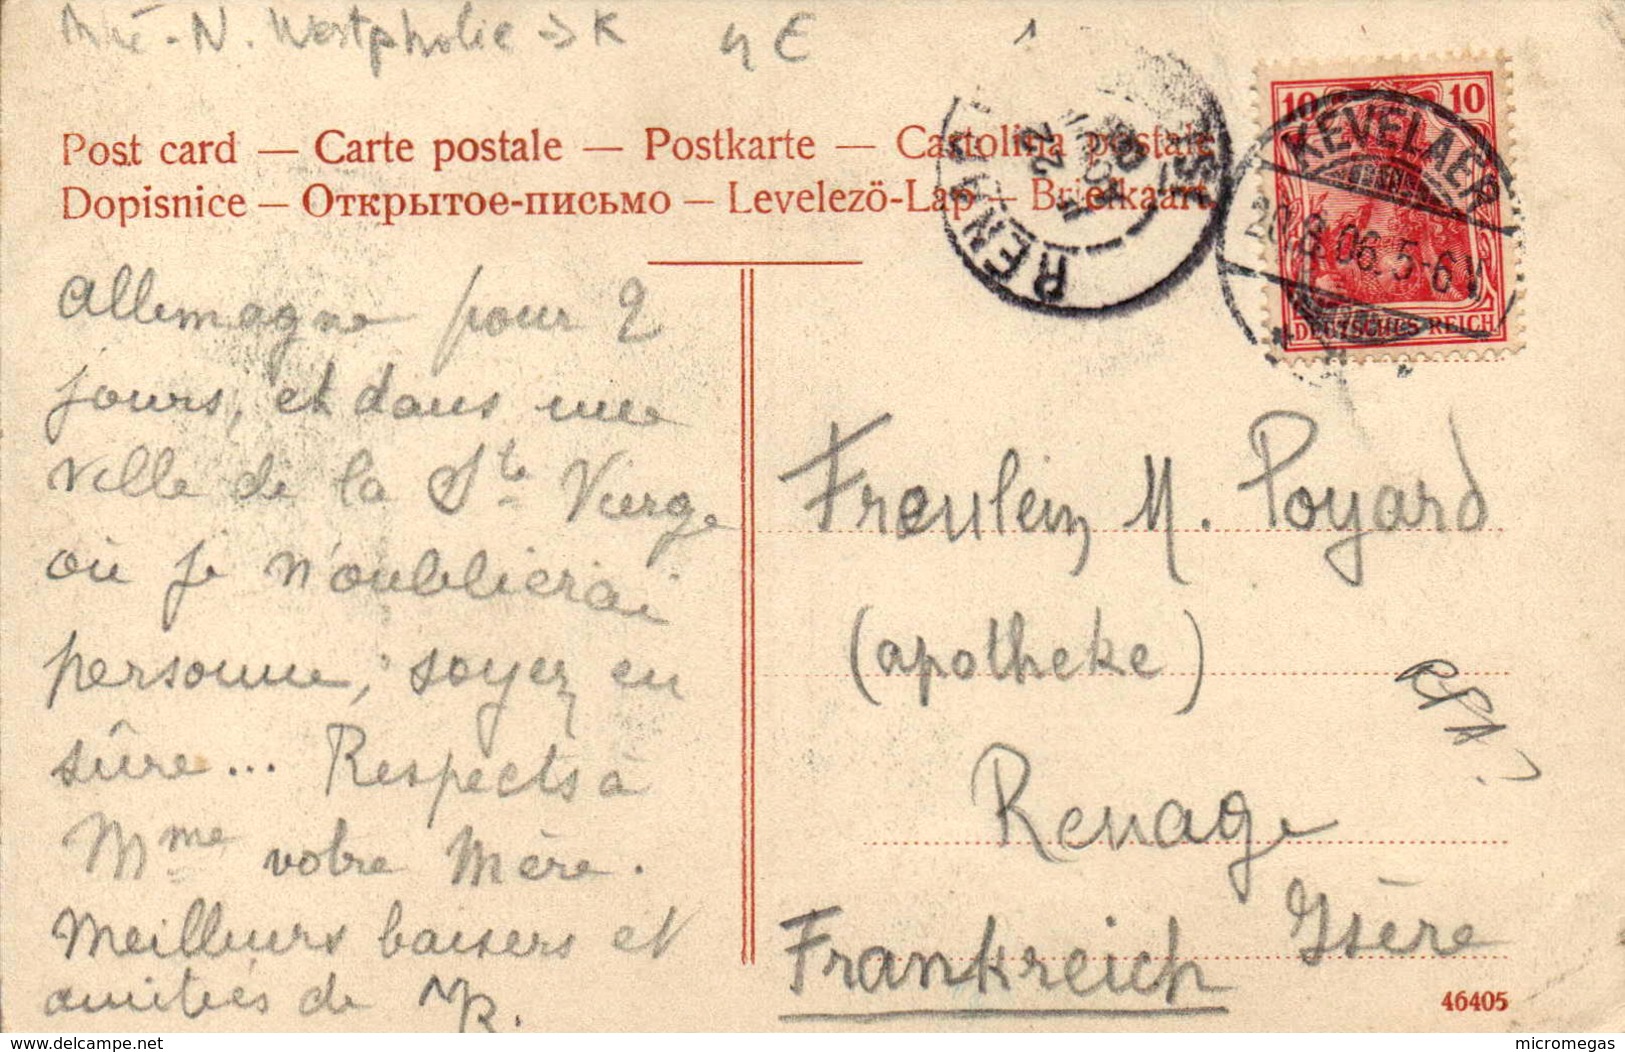 N. Westpholie → K 4 E 1
Post card — Carte postale — Postkarte — Cartolina postale
Dopisnice — Открытое-письмо — Levelezö-Lap — Briefkaart
10 10
KEVELAER
5-6 V
DEUTSCHES REICH
22
06
Allemagne pour 2
jours, et dans une
ville de la Ste Vierge
où je n'oublierai
personne, soyez en
sûre... Respects à
Mme votre Mère.
Meilleurs baisers et
amitiés de
Fraulein M. Poyard
(apotheke)
Renage
Isère
Frankreich
46405
https://www.delcampe.net
micromegas